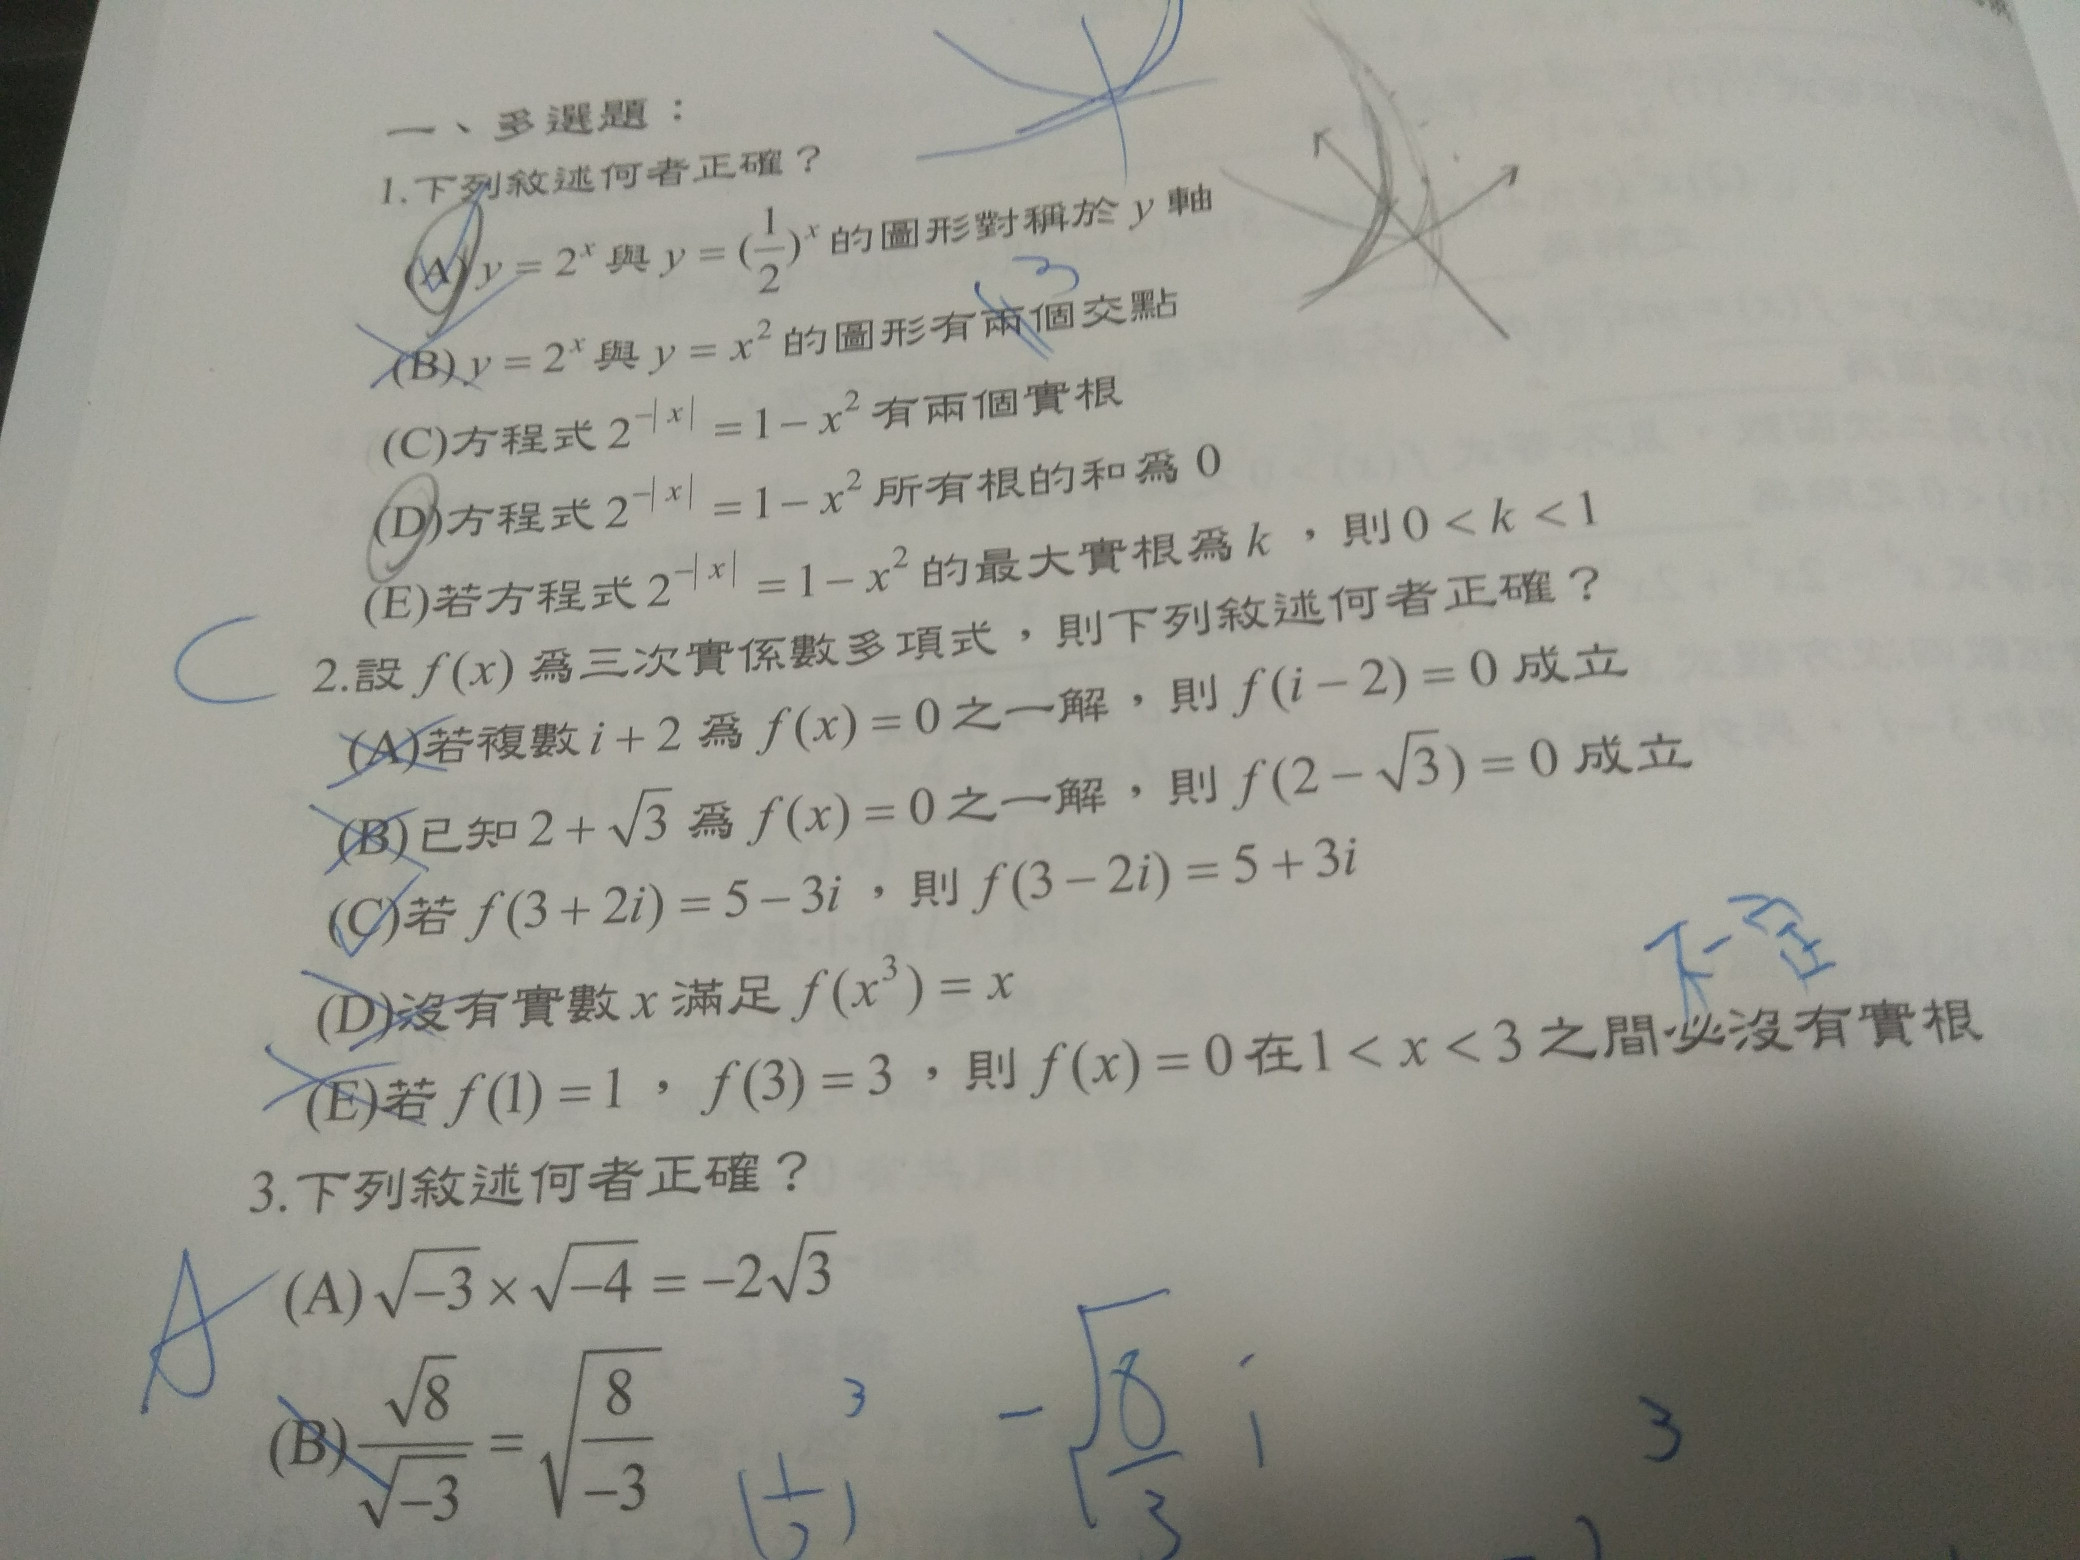 一、多選題：
1.下列敘述何者正確？
(A) y = 2^x 與 y = (1/2)^x 的圖形對稱於 y 軸
3
(B) y = 2^x 與 y = x^2 的圖形有兩個交點
(C)方程式 2^{-|x|} = 1 − x^2 有兩個實根
(D)方程式 2^{-|x|} = 1 − x^2 所有根的和為 0
(E)若方程式 2^{-|x|} = 1 − x^2 的最大實根為 k ，則 0 < k < 1
C
2.設 f(x) 為三次實係數多項式，則下列敘述何者正確？
(A)若複數 i + 2 為 f(x) = 0 之一解，則 f(i − 2) = 0 成立
(B)已知 2 + √3 為 f(x) = 0 之一解，則 f(2 − √3) = 0 成立
(C)若 f(3 + 2i) = 5 − 3i ，則 f(3 − 2i) = 5 + 3i
(D)沒有實數 x 滿足 f(x^3) = x
不一定
(E)若 f(1) = 1 ， f(3) = 3 ，則 f(x) = 0 在 1 < x < 3 之間必沒有實根
3.下列敘述何者正確？
A
(A) √−3 × √−4 = −2√3
(B) √8/√−3 = √(8/−3)
3
(1/2)
−√(8/3) i
3